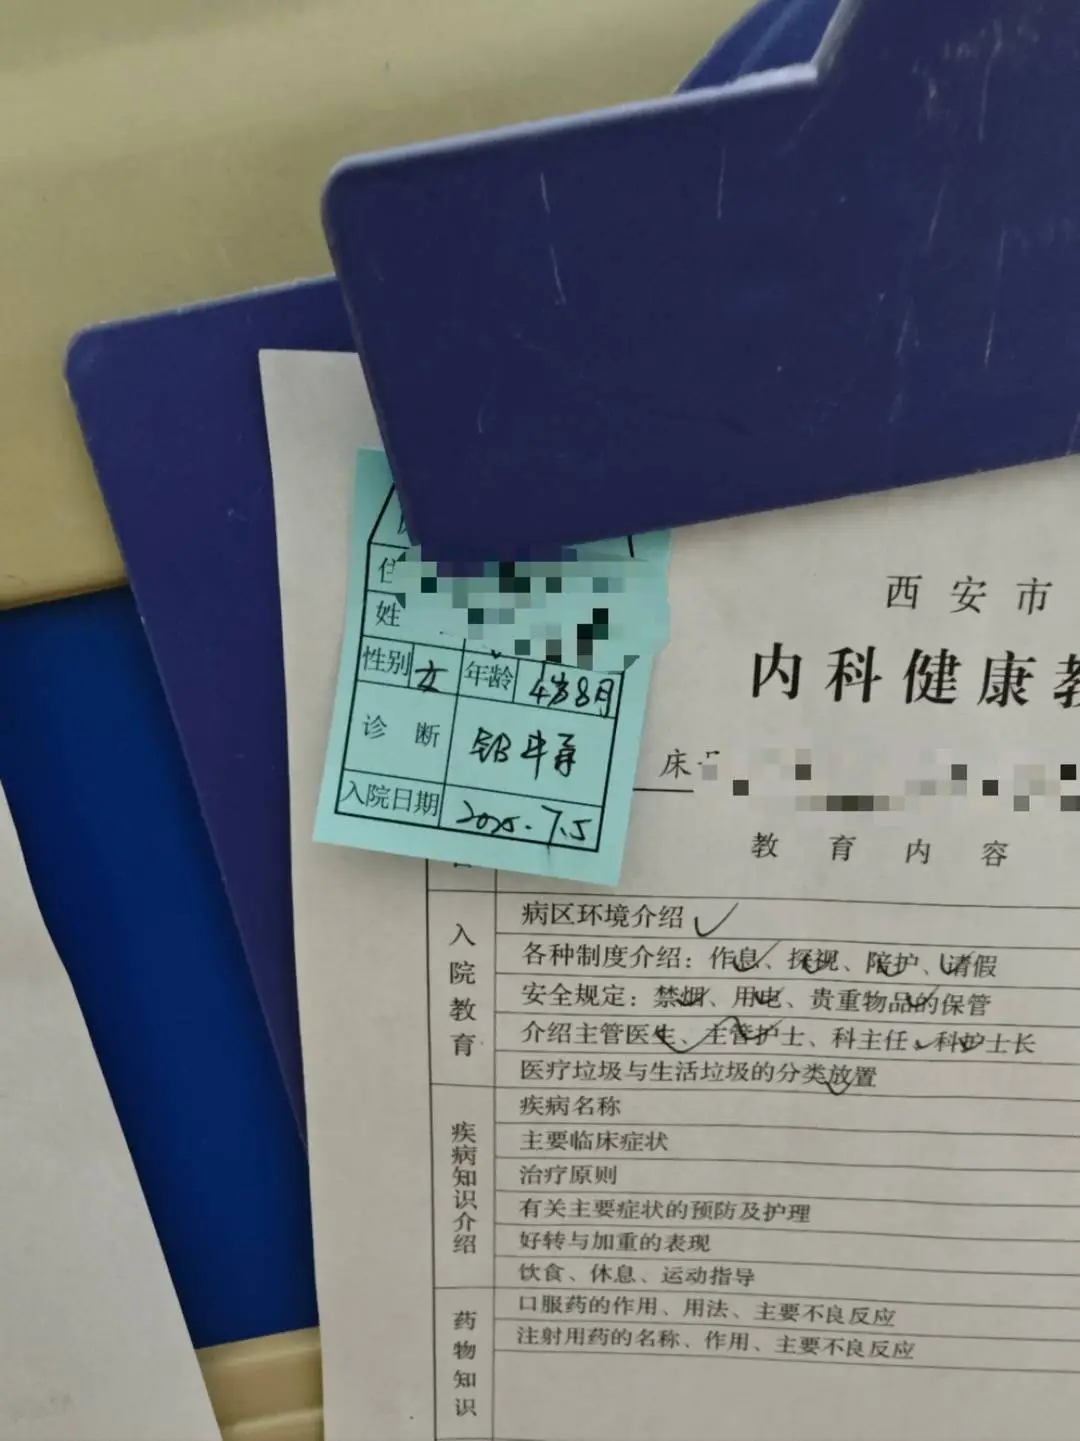 姓
性别 女 年龄 4岁8月
诊断 铅中毒
入院日期 2025.7.5
西安市
内科健康教
床
教育内容
入院教育
病区环境介绍 ✓
各种制度介绍：作息、探视、陪护、请假
安全规定：禁烟、用电、贵重物品的保管
介绍主管医生、主管护士、科主任、科护士长
医疗垃圾与生活垃圾的分类放置
疾病知识介绍
疾病名称
主要临床症状
治疗原则
有关主要症状的预防及护理
好转与加重的表现
饮食、休息、运动指导
药物知识
口服药的作用、用法、主要不良反应
注射用药的名称、作用、主要不良反应